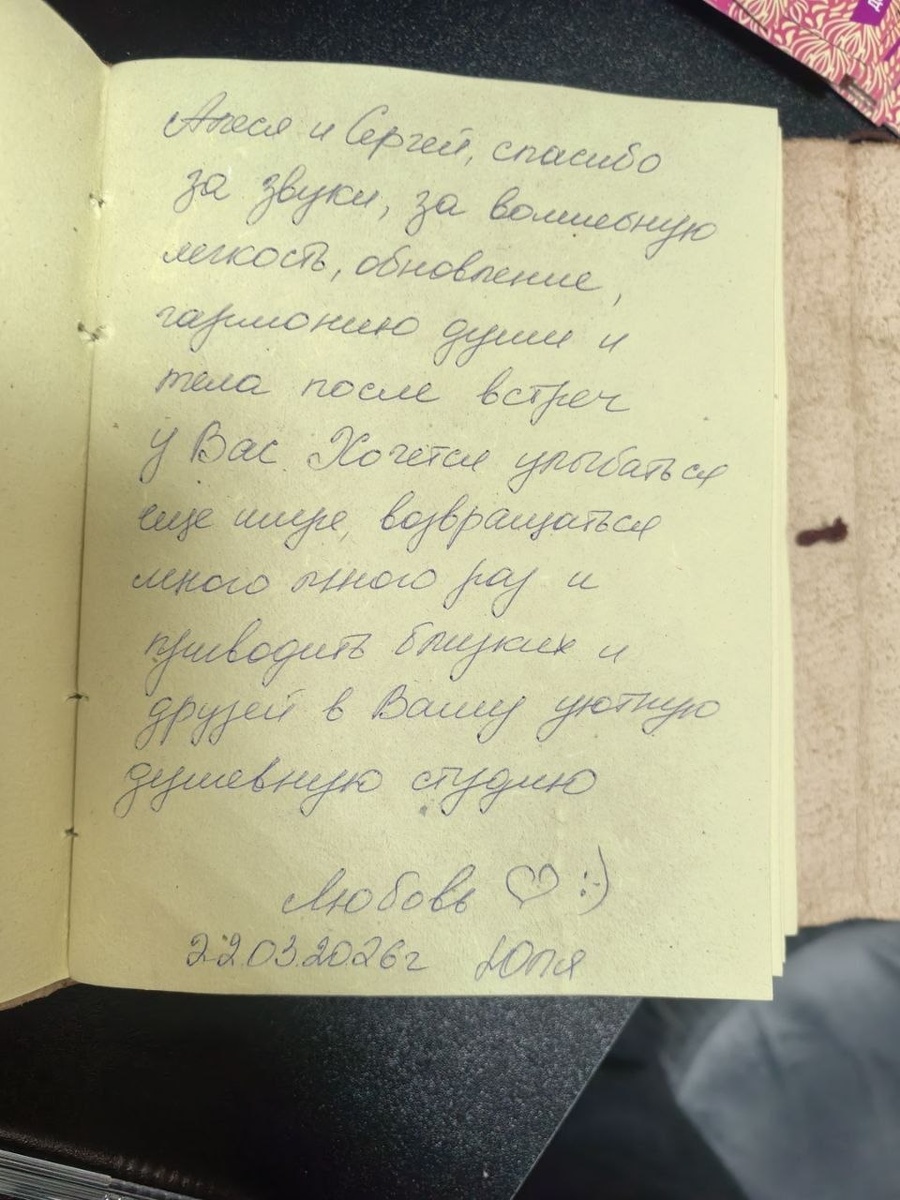 Алеся и Сергей, спасибо
за звуки, за волшебную
легкость, обновление,
гармонию души и
тела после встреч
у Вас. Хочется улыбаться
еще шире, возвращаться
много много раз и
приводить близких и
друзей в Вашу уютную
душевную студию
Любовь ♡ :-)
22.03.2026г Юля